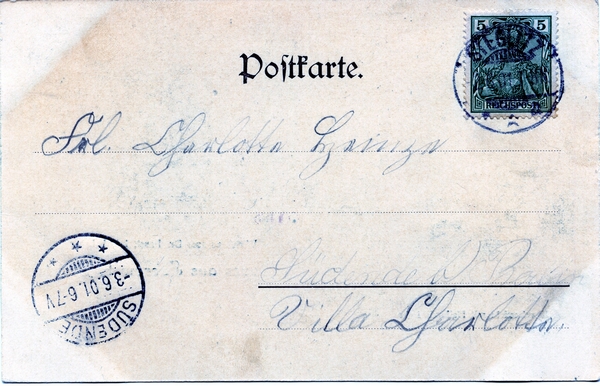 5 5
REICHSPOST
STEGLITZ
Postkarte.
Frl. Charlotte Heinze
Südende b/ Berlin
Villa Charlotte.
-3.6.01.6-7V
SÜDENDE